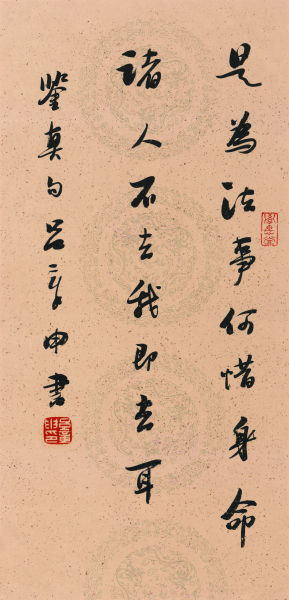 是為法事何惜身命
諸人不去我即去耳
鑒真句吕章申書